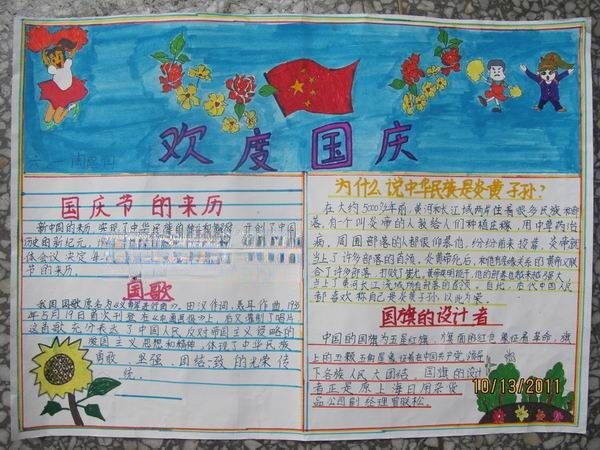 欢度国庆
国庆节的来历
新中国的来历,实现了中华民族的
开创了中国
历史的新纪元,
体会议决定
节的来历。
国歌
我国国歌原名为《义勇军进行曲》,田汉作词,聂耳作曲,1935
年5月19日首次刊登在
后又灌制了唱片
这首歌充分表达了中国人民反对帝国主义侵略的
爱国主义思想和精神,体现了中华民族
勇敢、坚强、团结一致的光荣传
统。
为什么说中华民族是炎黄子孙?
在大约5000多年前,黄河和长江流域两岸住着很多民族和部
落,有一个叫炎帝的人教给人们种植庄稼,用中草药治
病,周围部落的人都很仰慕他,纷纷前来投靠,炎帝就
当上了许多部落的首领。炎黄帝死后,和他有
关系的黄帝又联
合了许多部落,打败了蚩尤,黄帝联明能干,他的部落也越来越强大,
当上了黄河长江流域两岸部落的首领。自此,后代中国人
都喜欢称自己是炎黄子孙,以此为荣。
国旗的设计者
中国的国旗为五星红旗,旗面的红色象征着革命,旗
上的五颗五角星
象征着在中国共产党领导
下各族人民大团结。国旗的设计
者正是原上海日用杂货
品公司副经理曾联松。
10/13/2011